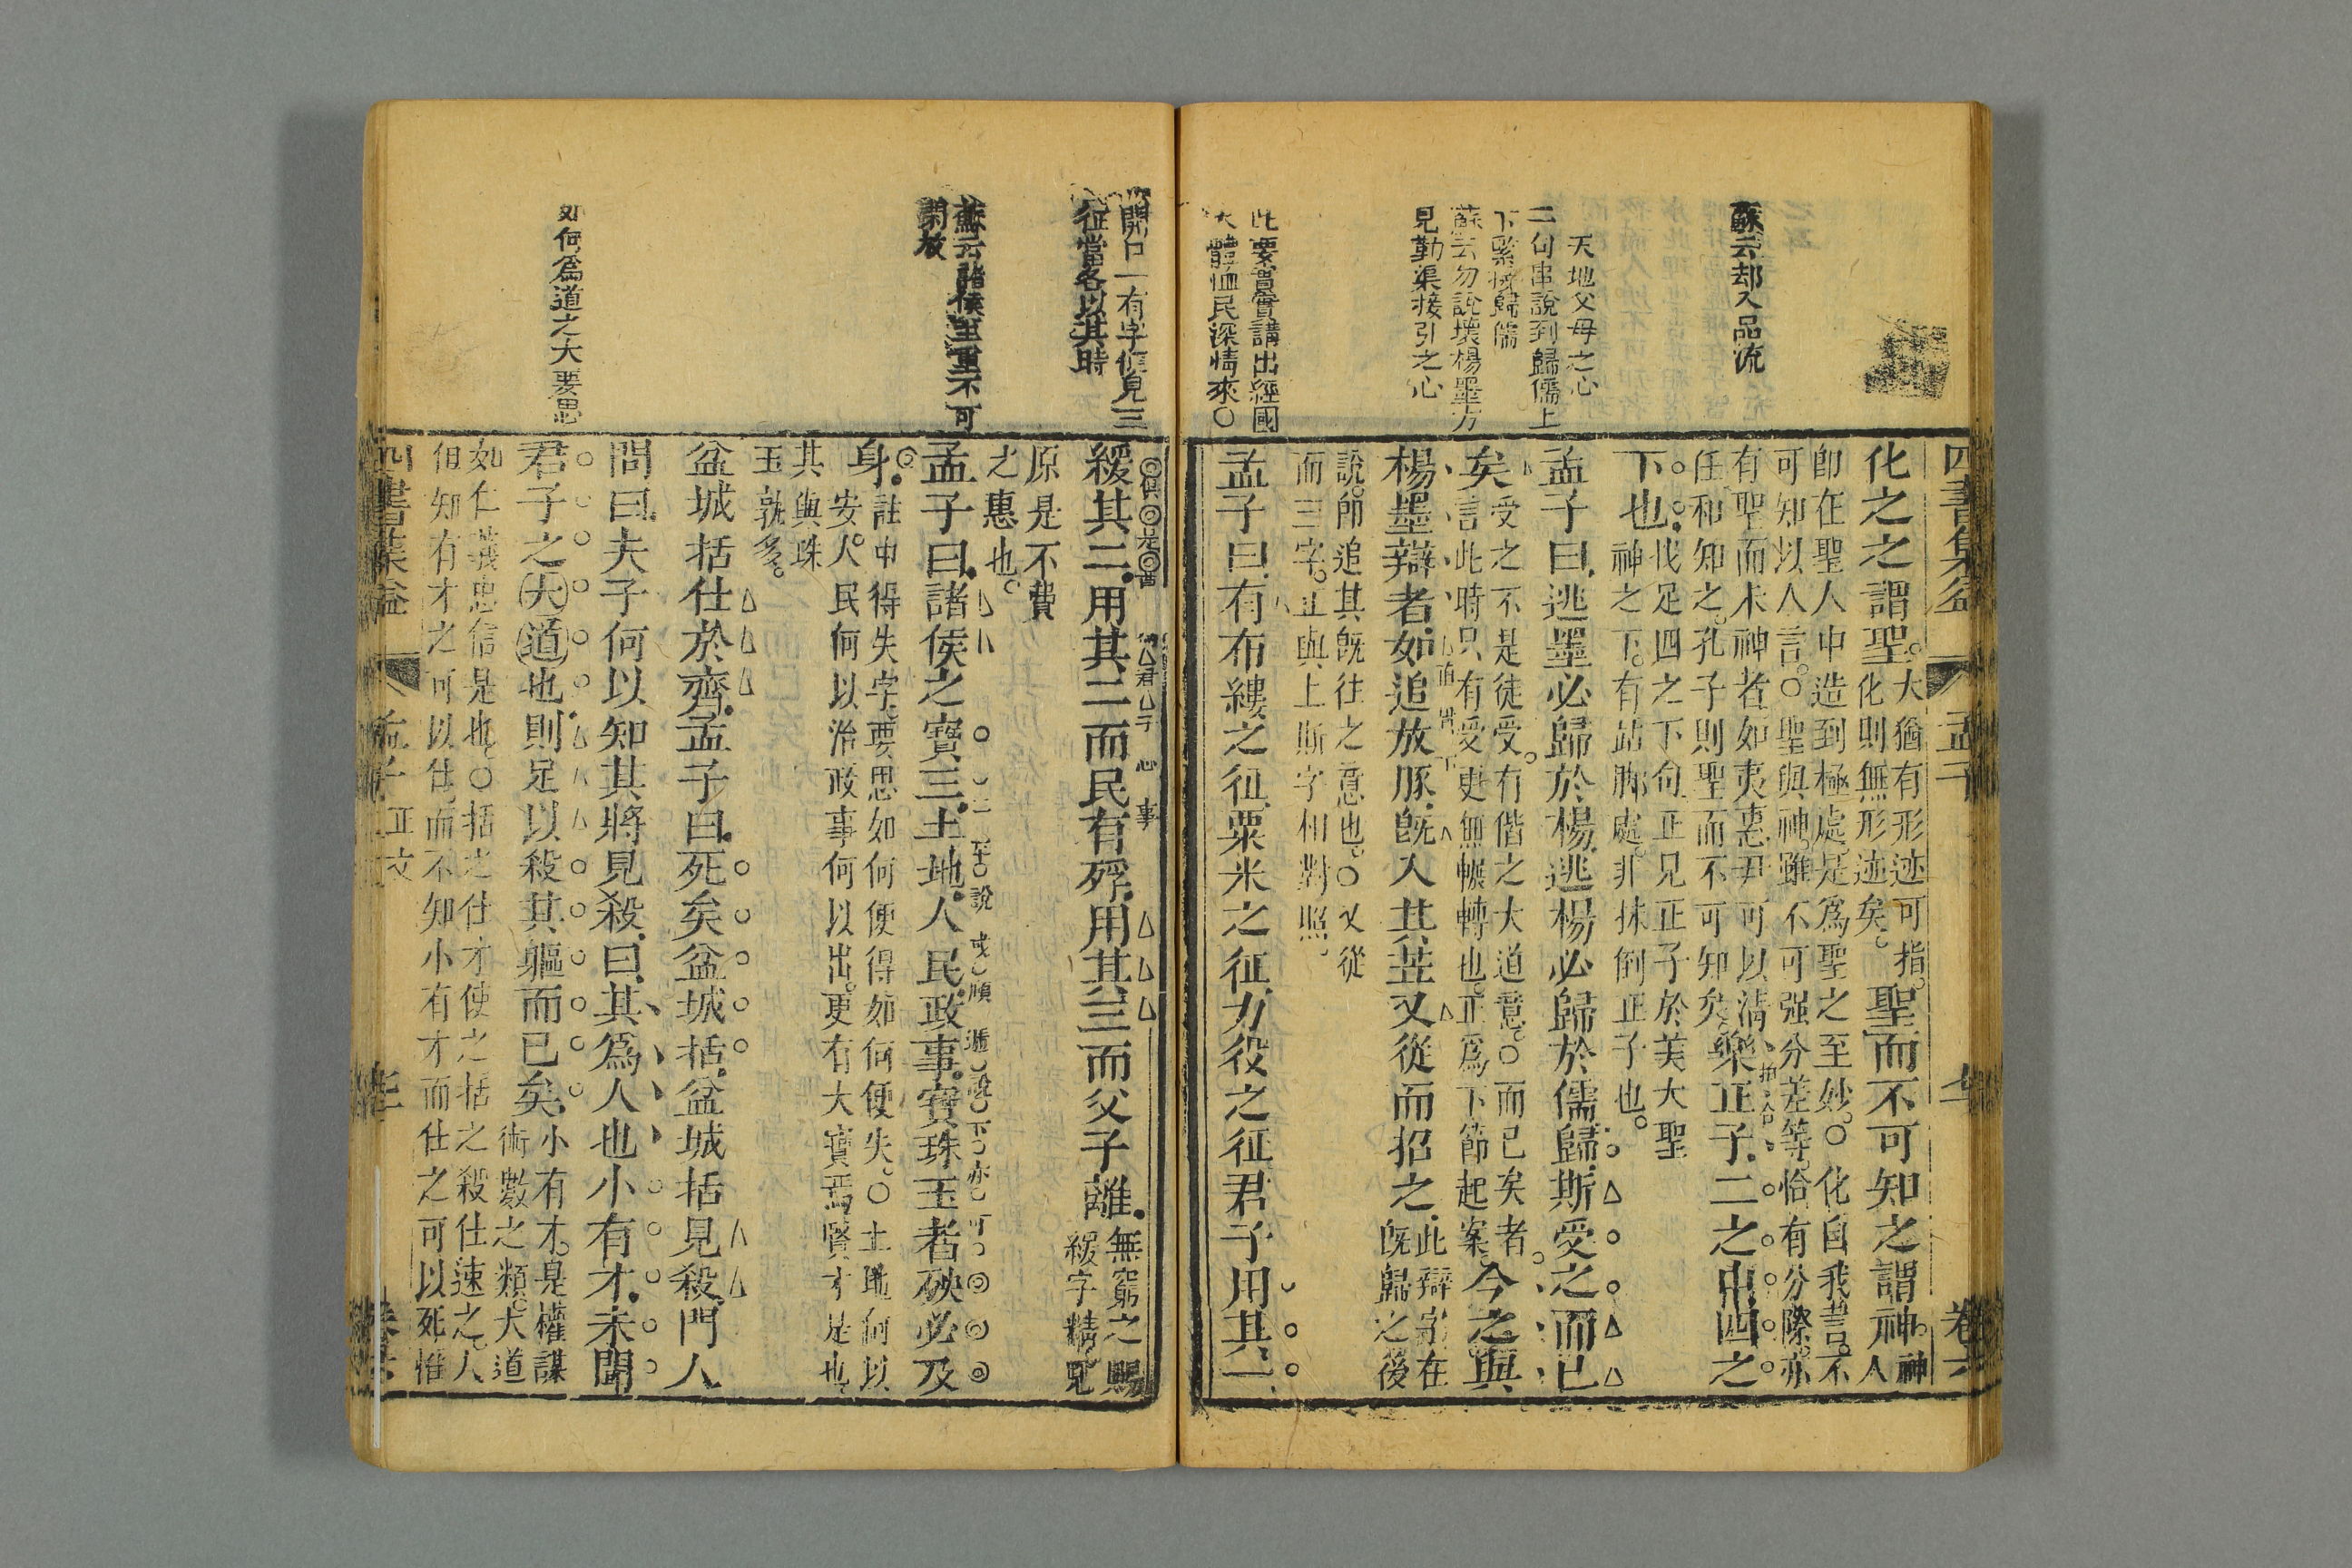 四書集益
孟子
卷六
蘇云却入品流
天地父母之心
二句串說到歸儒上
下緊擒歸儒
蘇云勿說壞楊墨方
見勤渠接引之心
此要實實講出經國
大體恤民深情來○
化之之謂聖大猶有形迹可指
化則無形迹矣聖而不可知之謂神神
人
卽在聖人中造到極處是爲聖之至妙○化自我言不
可知以人言○聖與神雖不可强分差等恰有分際亦
有聖而未神者如夷惠尹可以清
任和知之孔子則聖而不可知矣樂正子二之中四之
下也伐足四之下句正見正子於美大聖
神之下有站脚處非抹倒正子也
孟子曰逃墨必歸於楊逃楊必歸於儒歸斯受之而已
矣受之不是徒受有偕之大道意○而已矣者
言此時只有受更無輾轉也正爲下節起案今之與
楊墨辯者如追放豚旣入其苙又從而招之此辯字在
旣歸之後
說節追其旣往之意也○又從
而三字正與上斯字相對照
孟子曰有布縷之征粟米之征力役之征君子用其一
開口一有字便見三
征當各以其時
蘇云諸侯至重不可
閑放
如何爲道之大要思
緩其二用其二而民有殍用其三而父子離無窮之賜
緩字精見
原是不費
之惠也
孟子曰諸侯之寶三土地人民政事寶珠玉者殃必及
身註中得失字要思如何便得如何便失○土地何以
安人民何以治政事何以出更有大寶焉賢才是也
其與珠
玉孰多
盆城括仕於齊孟子曰死矣盆城括盆城括見殺門人
問曰夫子何以知其將見殺曰其爲人也小有才未聞
君子之大道也則足以殺其軀而已矣小有才是權謀
術數之類大道
如仁義忠信是也○括之仕才使之括之殺仕速之人
但知有才之可以仕而不知小有才而仕之可以死惟
四書集益
孟子 正文